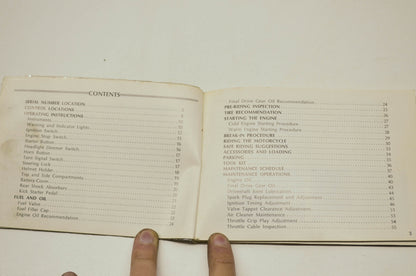 CONTENTS
SERIAL NUMBER LOCATION
CONTROL LOCATIONS
OPERATING INSTRUCTIONS
Instruments
Warning and Indicator Lights
Ignition Switch
Engine Stop Switch
Starter Button
Headlight Dimmer Switch
Horn Button
Turn Signal Switch
Steering Lock
Helmet Holder
Top and Side Compartments
Battery Cover
Rear Shock Absorbers
Kick Starter Pedal
FUEL AND OIL
Fuel Valve
Fuel Filler Cap
Engine Oil Recommendation 24
Final Drive Gear Oil Recommendation 24
PRE-RIDING INSPECTION 25
TIRE RECOMMENDATION
STARTING THE ENGINE
Cold Engine Starting Procedure
Warm Engine Starting Procedure
BREAK-IN PROCEDURE
RIDING THE MOTORCYCLE
SAFE RIDING SUGGESTIONS
ACCESSORIES AND LOADING
PARKING
TOOL KIT
MAINTENANCE SCHEDULE
MAINTENANCE OPERATIONS
Engine Oil
Final Drive Gear Oil
Driveshaft Joint Lubrication
Spark Plug Replacement and Adjustment
Ignition Timing Adjustment
Valve Tappet Clearance Adjustment
Air Cleaner Maintenance
Throttle Grip Play Adjustment
Throttle Cable Inspection
3